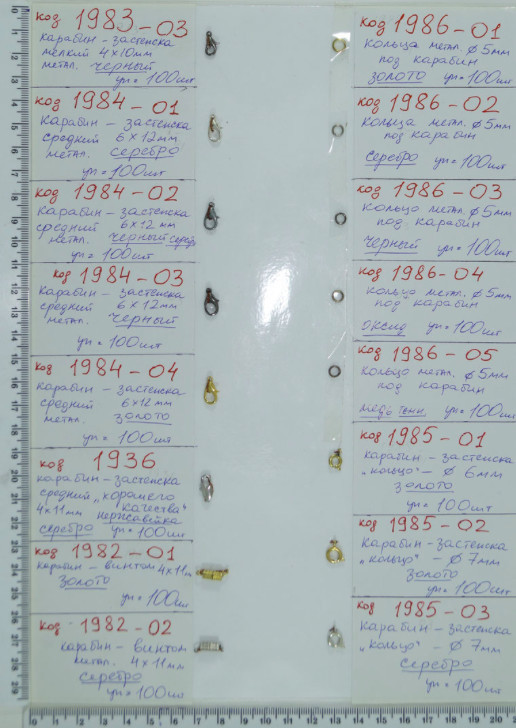 код 1983-03
карабин-застежка
мелкий 4х10мм
метал. черный
уп=100шт
код 1984-01
карабин-застежка
средний 6х12мм
метал. серебро
уп=100шт
код 1984-02
карабин-застежка
средний 6х12 мм
метал. черный серебр
уп=100шт
код 1984-03
карабин-застежка
средний 6х12мм
метал. черный
уп=100шт
код 1984-04
карабин-застежка
средний 6х12мм
метал. золото
уп=100шт
код 1936
карабин-застежка
средний „хорошего
4х11мм качества“
нержавейка
серебро уп=100шт
код 1982-01
карабин-винтом 4х11м
золото
уп=100шт
код 1982-02
карабин-винтом
метал. 4х11мм
серебро
уп=100шт
код 1986-01
кольца метал. ø5мм
под карабин
золото уп=100шт
код 1986-02
кольца метал. ø5мм
под карабин
серебро уп=100шт
код 1986-03
кольцо метал. ø5мм
под карабин
черный уп=100шт
код 1986-04
кольцо метал. ø5мм
под карабин
оксид уп=100шт
код 1986-05
кольцо метал. ø5мм
под карабин
уп=100шт
код 1985-01
карабин-застежка
„кольцо“- ø 6мм
золото
уп=100шт
код 1985-02
карабин-застежка
„кольцо“ - ø 7мм
золото
уп=100шт
код 1985-03
карабин-застежка
„кольцо“- ø 7мм
серебро
уп=100шт